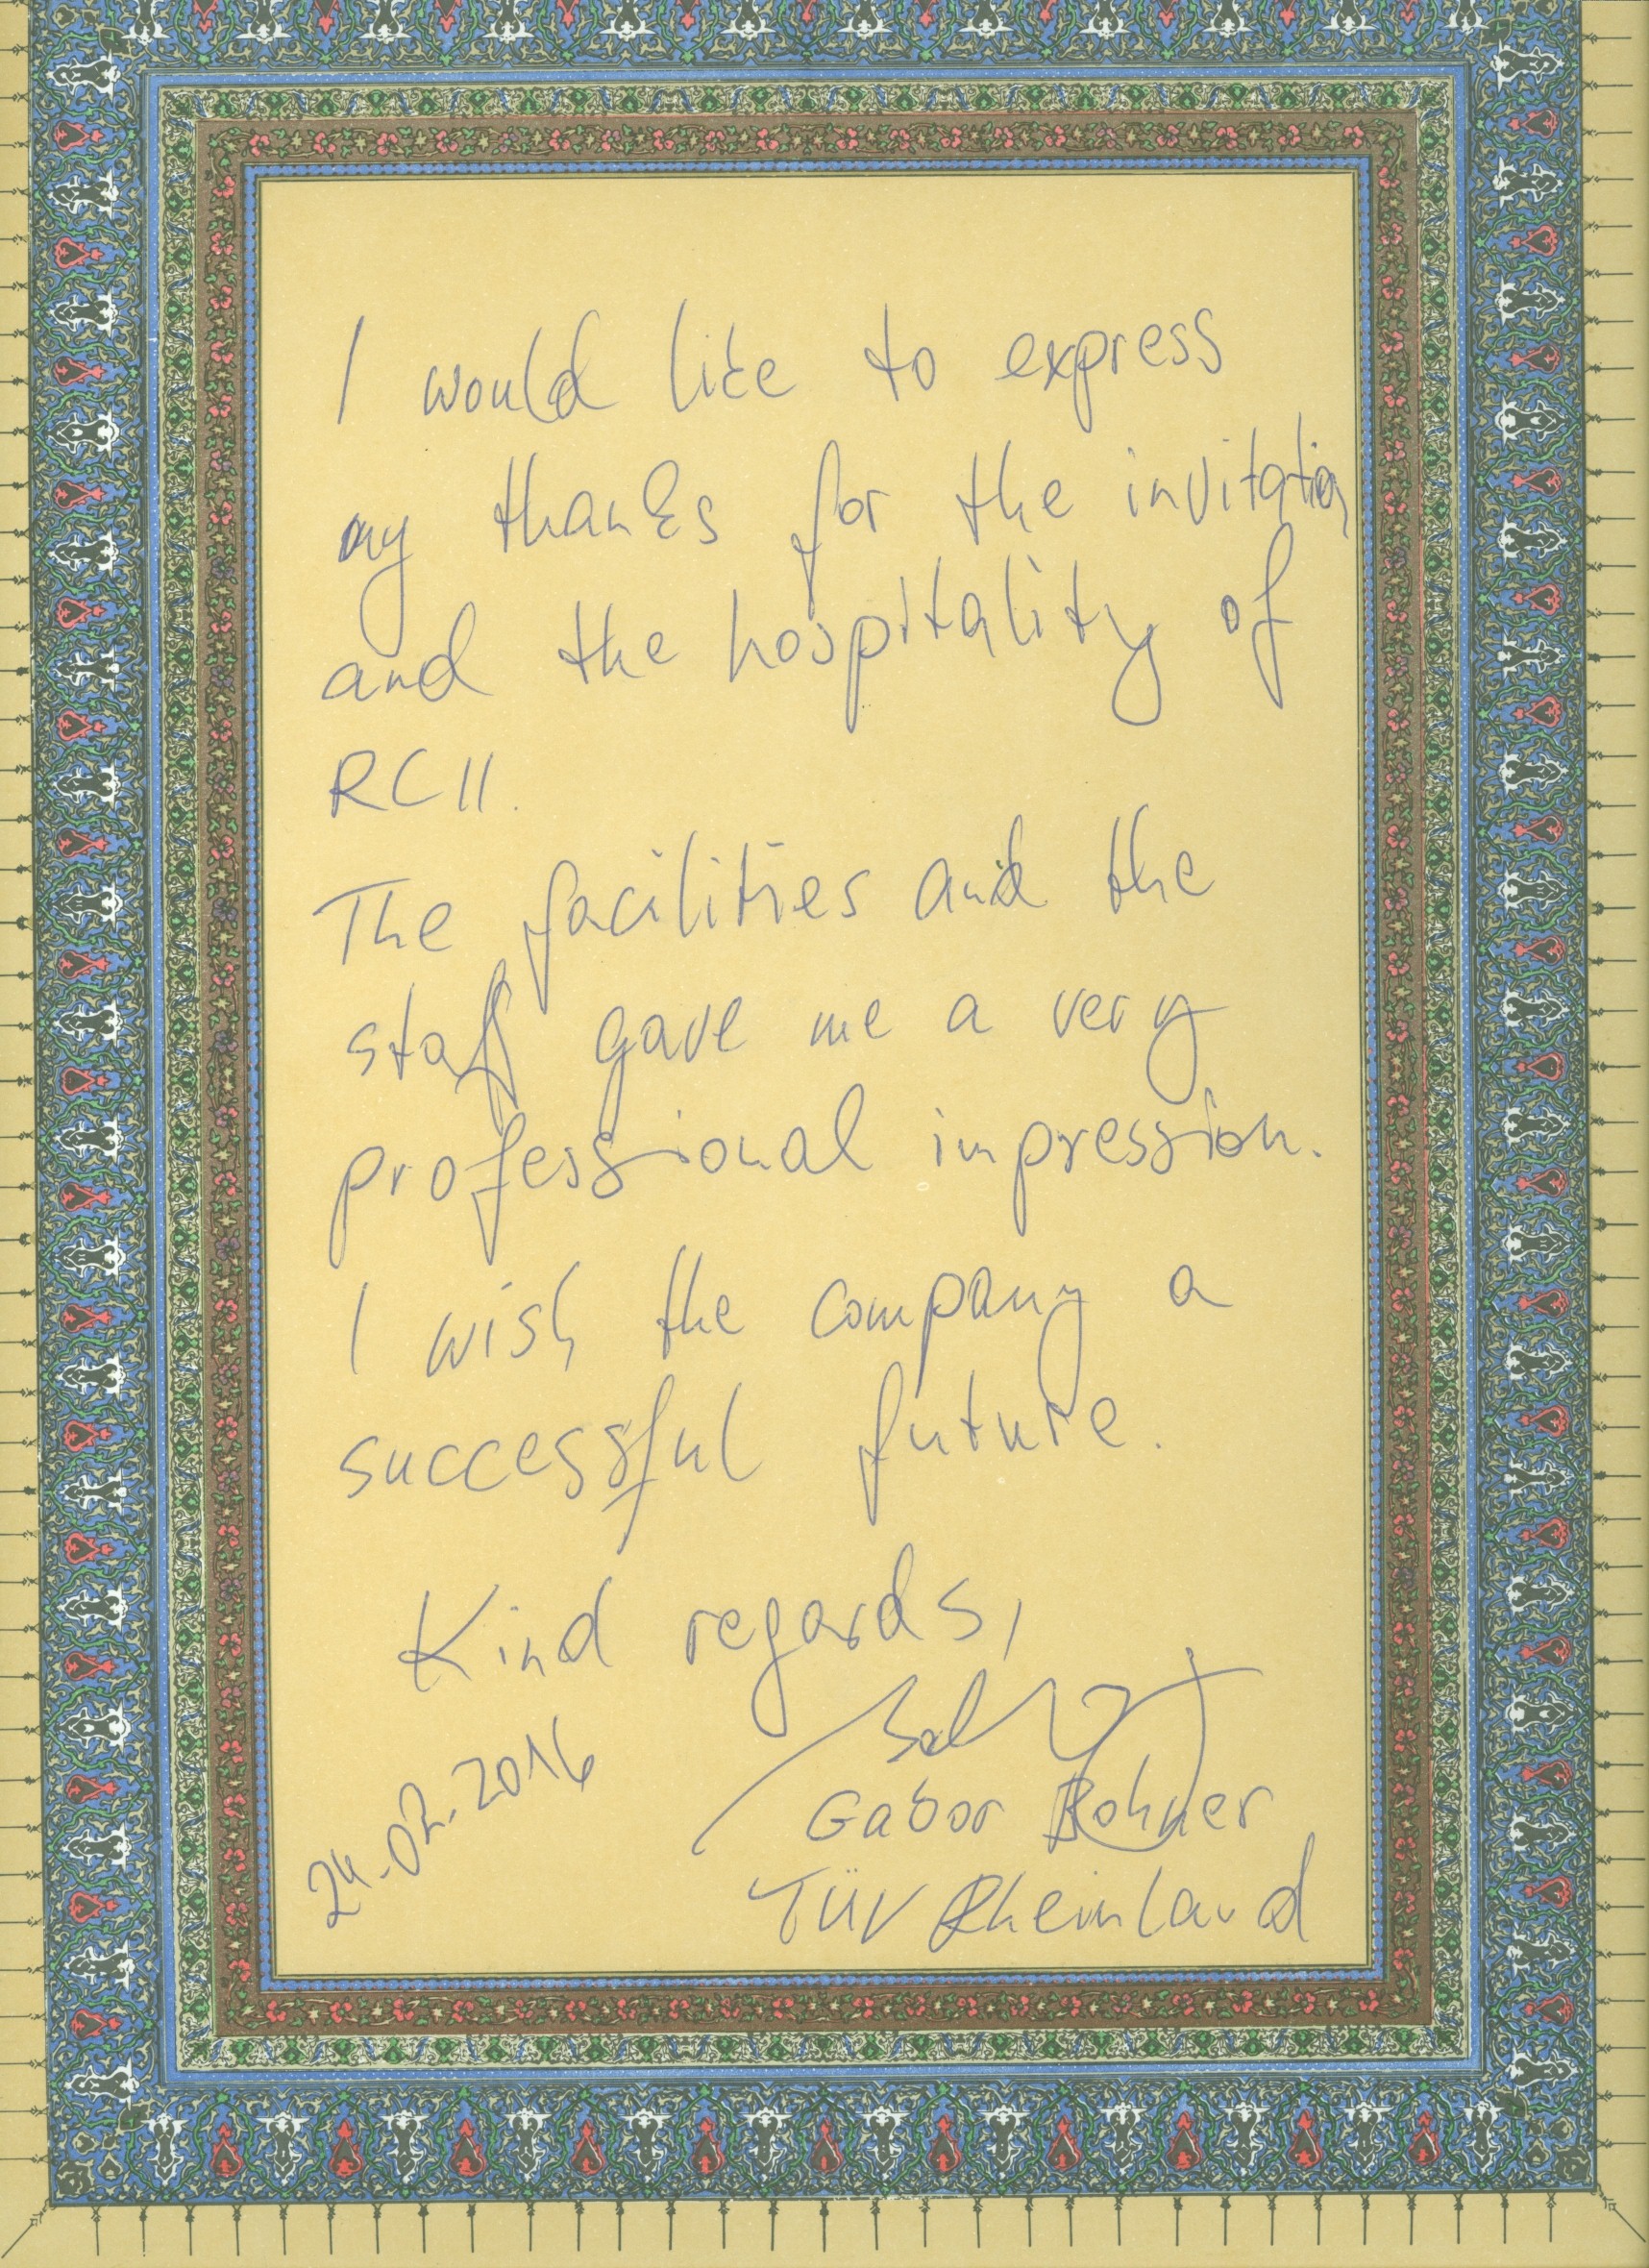 I would like to express
my thanks for the invitation
and the hospitality of
RCII.
The facilities and the
staff gave me a very
professional impression.
I wish the company a
successful future.
Kind regards,
24.02.2016
Gabor Bohner
TÜV Rheinland